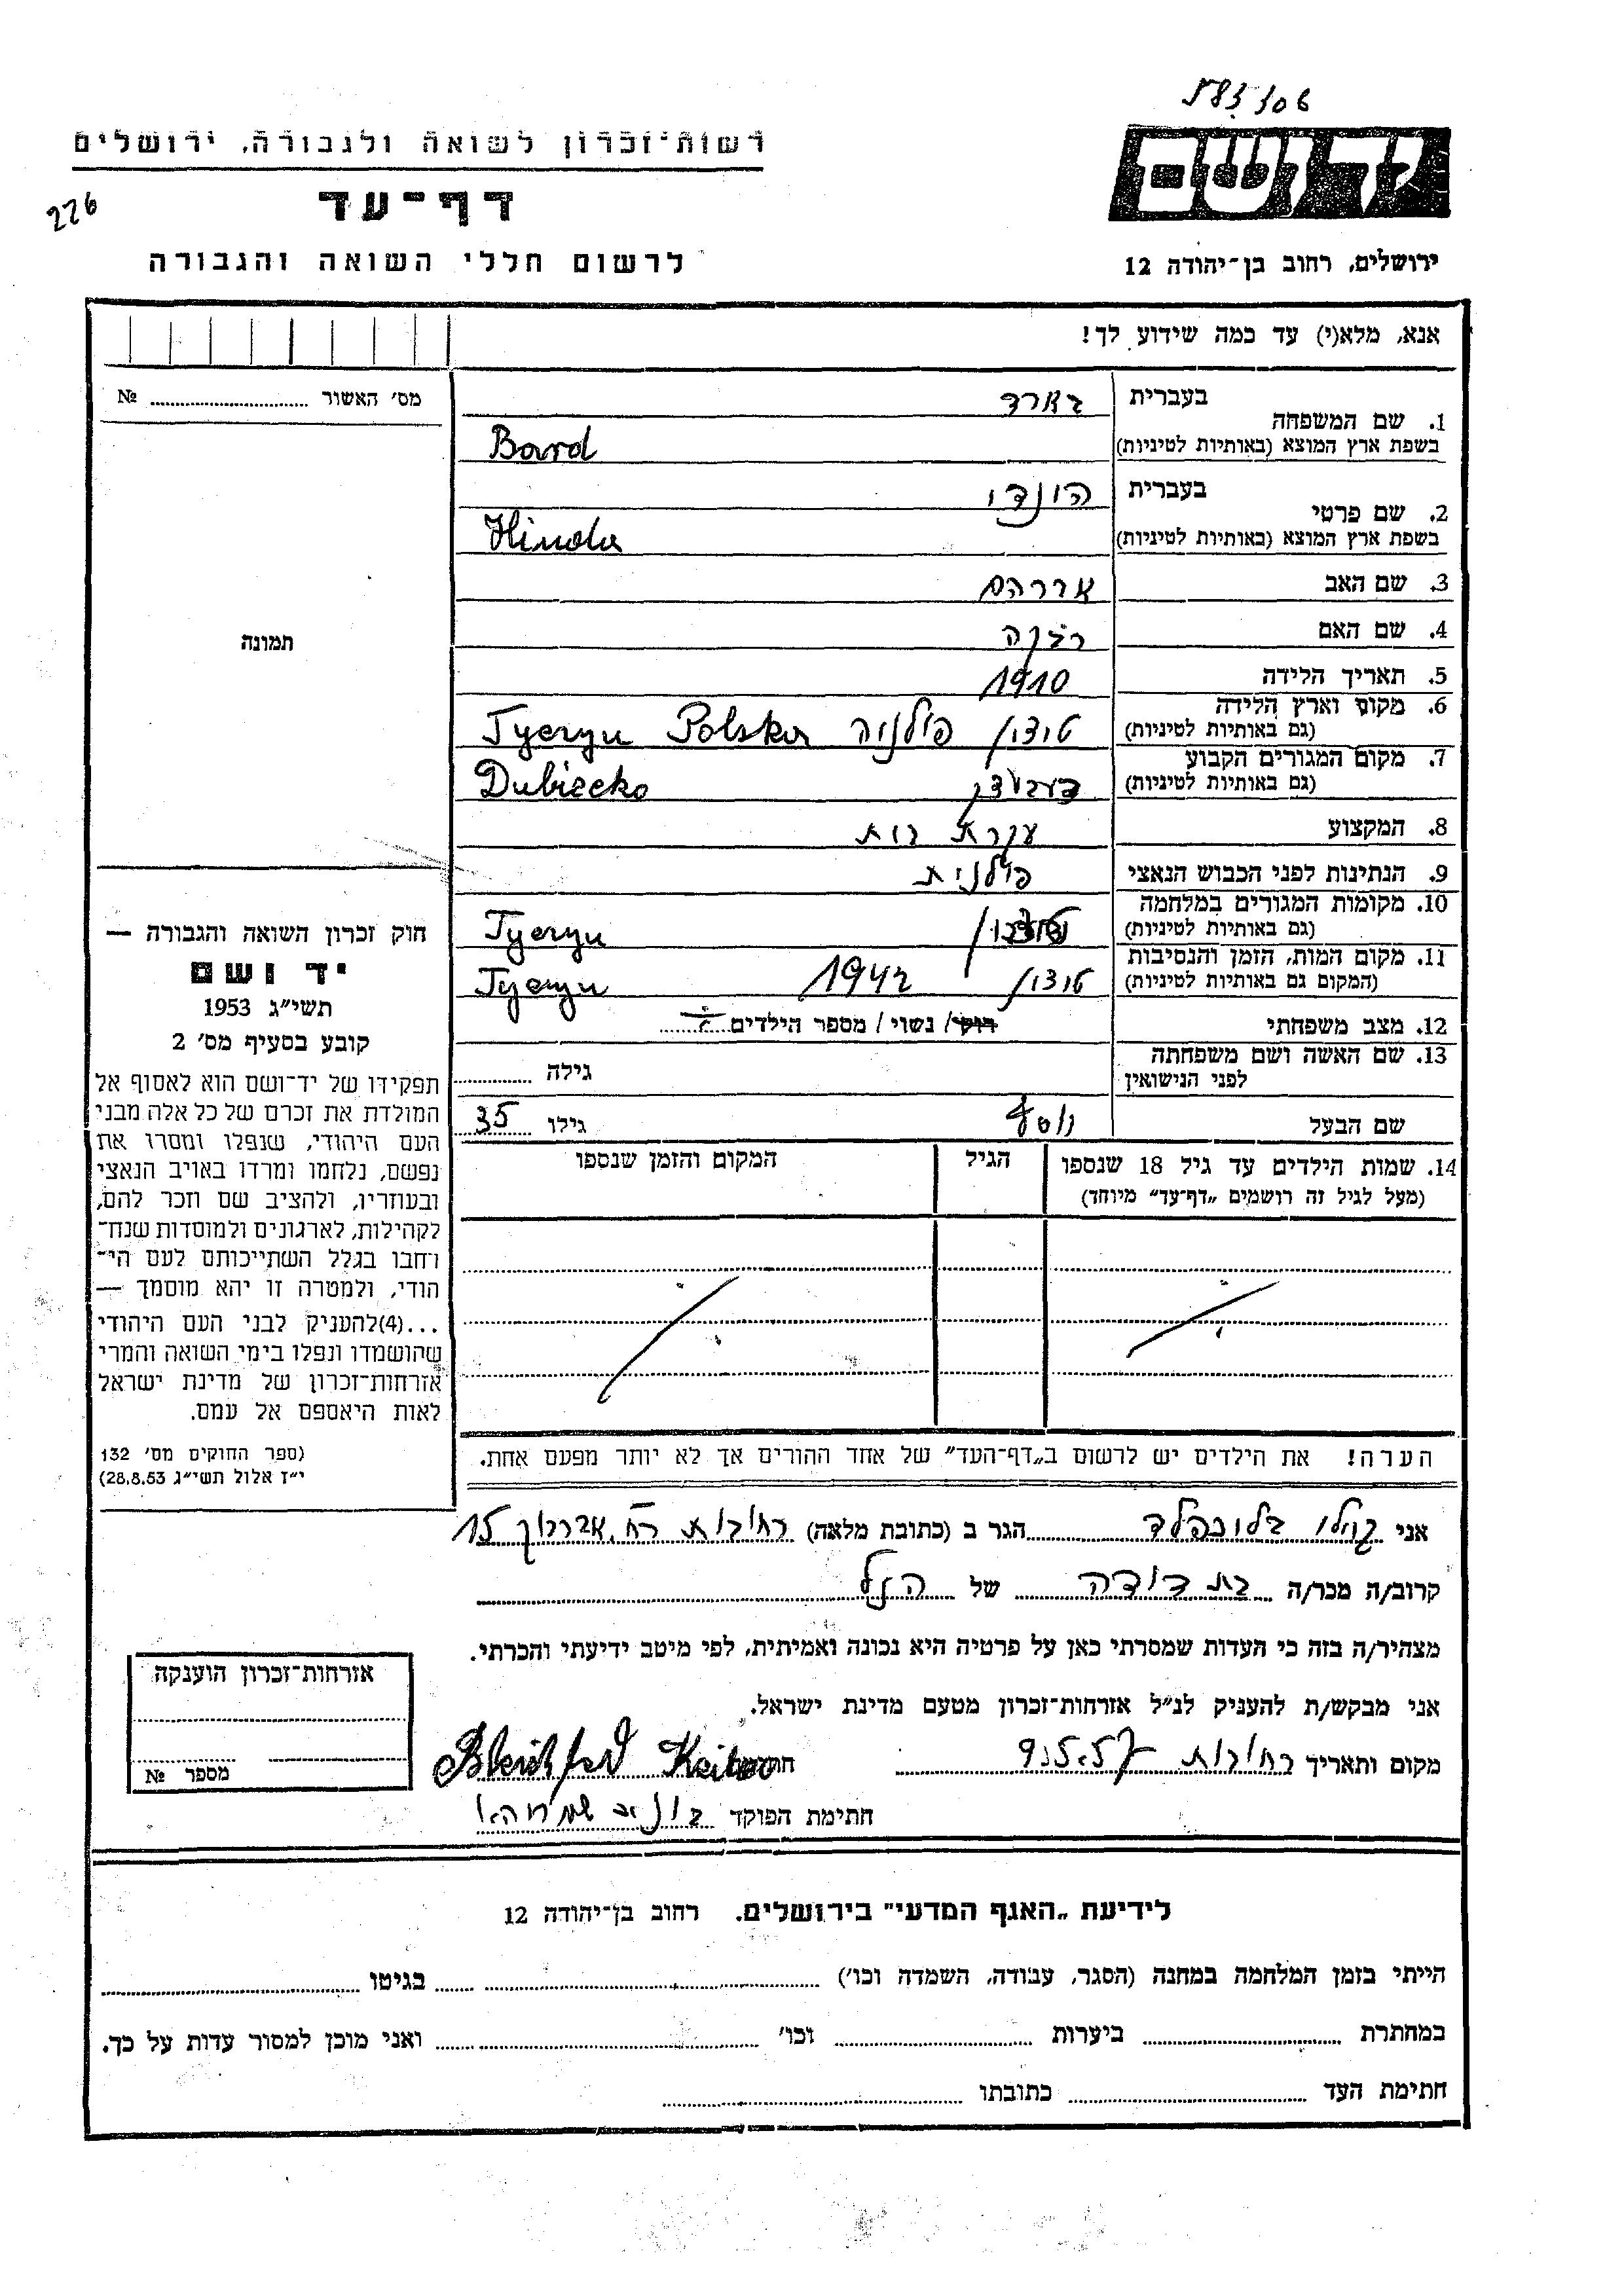 רשות־זכרון לשואה ולגבורה, ירושלים
226
דף־עד
לרשום חללי השואה והגבורה
ירושלים, רחוב בן־יהודה 12
אנא, מלא(י) עד כמה שידוע לך!
מס׳ האשור № 
1. שם המשפחה
בעברית בארד
בשפת ארץ המוצא (באותיות לטיניות) Bard
2. שם פרטי
בעברית הינדי
בשפת ארץ המוצא (באותיות לטיניות) Hinda
3. שם האב אברהם
4. שם האם רבקה
5. תאריך הלידה 1910
6. מקום וארץ הלידה
(גם באותיות לטיניות) טיצין פולניה Tyczyn Polska
7. מקום המגורים הקבוע
(גם באותיות לטיניות) Dubiecko
8. המקצוע עקרת בית
9. הנתינות לפני הכבוש הנאצי פולנית
10. מקומות המגורים במלחמה
(גם באותיות לטיניות) Tyczyn
11. מקום המות, הזמן והנסיבות
(המקום גם באותיות לטיניות) טיצין 1942 Tyczyn
12. מצב משפחתי רוק/ נשוי / מספר הילדים
13. שם האשה ושם משפחתה
לפני הנישואין
גילה
שם הבעל גילו 35
14. שמות הילדים עד גיל 18 שנספו
(מעל לגיל זה רושמים „דף־עד״ מיוחד)
הגיל
המקום והזמן שנספו
הערה! את הילדים יש לרשום ב„דף־העד״ של אחד ההורים אך לא יותר מפעם אחת.
תמונה
חוק זכרון השואה והגבורה —
יד ושם
תשי״ג 1953
קובע בסעיף מס׳ 2
תפקידו של יד־ושם הוא לאסוף אל
המולדת את זכרם של כל אלה מבני
העם היהודי, שנפלו ומסרו את
נפשם, נלחמו ומרדו באויב הנאצי
ובעוזריו, ולהציב שם וזכר להם,
לקהילות, לארגונים ולמוסדות שנח־
רחבו בגלל השתייכותם לעם הי־
הודי, ולמטרה זו יהא מוסמך —
...(4)להעניק לבני העם היהודי
שהושמדו ונפלו בימי השואה והמרי
אזרחות־זכרון של מדינת ישראל
לאות היאספם אל עמם.
(ספר החוקים מס׳ 132
י״ז אלול תשי״ג 28.8.53)
אני הגר ב (כתובת מלאה) רחובות רח. 15
קרוב/ה מכר/ה בת דודה של הנ״ל
מצהיר/ה בזה כי העדות שמסרתי כאן על פרטיה היא נכונה ואמיתית, לפי מיטב ידיעתי והכרתי.
אני מבקש/ת להעניק לנ״ל אזרחות־זכרון מטעם מדינת ישראל.
מקום ותאריך רחובות חתימה
חתימת הפוקד
אזרחות־זכרון הוענקה
מספר №
לידיעת „האגף המדעי״ בירושלים. רחוב בן־יהודה 12
הייתי בזמן המלחמה במחנה (הסגר, עבודה, השמדה וכו׳) בגיטו
במחתרת ביערות וכו׳ ואני מוכן למסור עדות על כך.
חתימת העד כתובתו